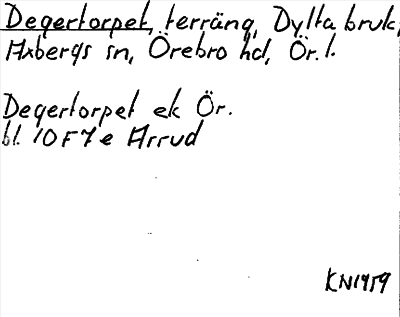 Degertorpet, terräng, Dylta bruk,
Axbergs sn, Örebro hd, Ör. l.
Degertorpet ek Ör.
bl. 10F7e Arrud
KN1959